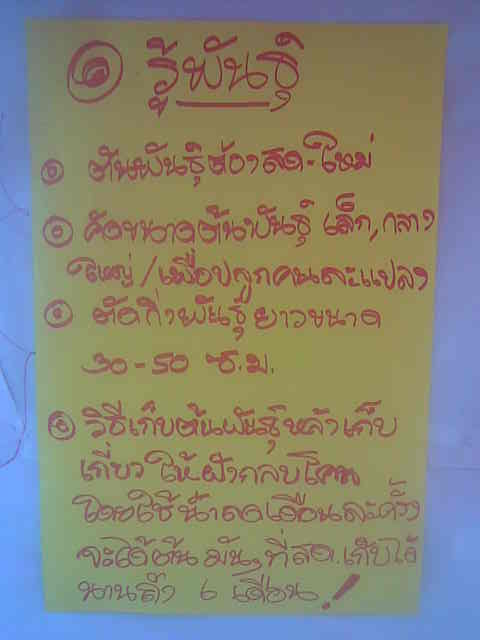 ๑ รู้พันธุ์
๐ ต้นพันธุ์ต้องสด-ใหม่
๐ คัดขนาดต้นพันธุ์ เล็ก, กลาง
ใหญ่/เพื่อปลูกคนละแปลง
๐ ตัดกิ่งพันธุ์ยาวขนาด
30-50 ซ.ม.
๐ วิธีเก็บต้นพันธุ์หลังเก็บ
เกี่ยว ให้ฝังกลบโคน
โดยใช้น้ำรดเดือนละครั้ง
จะได้ต้นมันที่สด เก็บได้
นานถึง 6 เดือน!